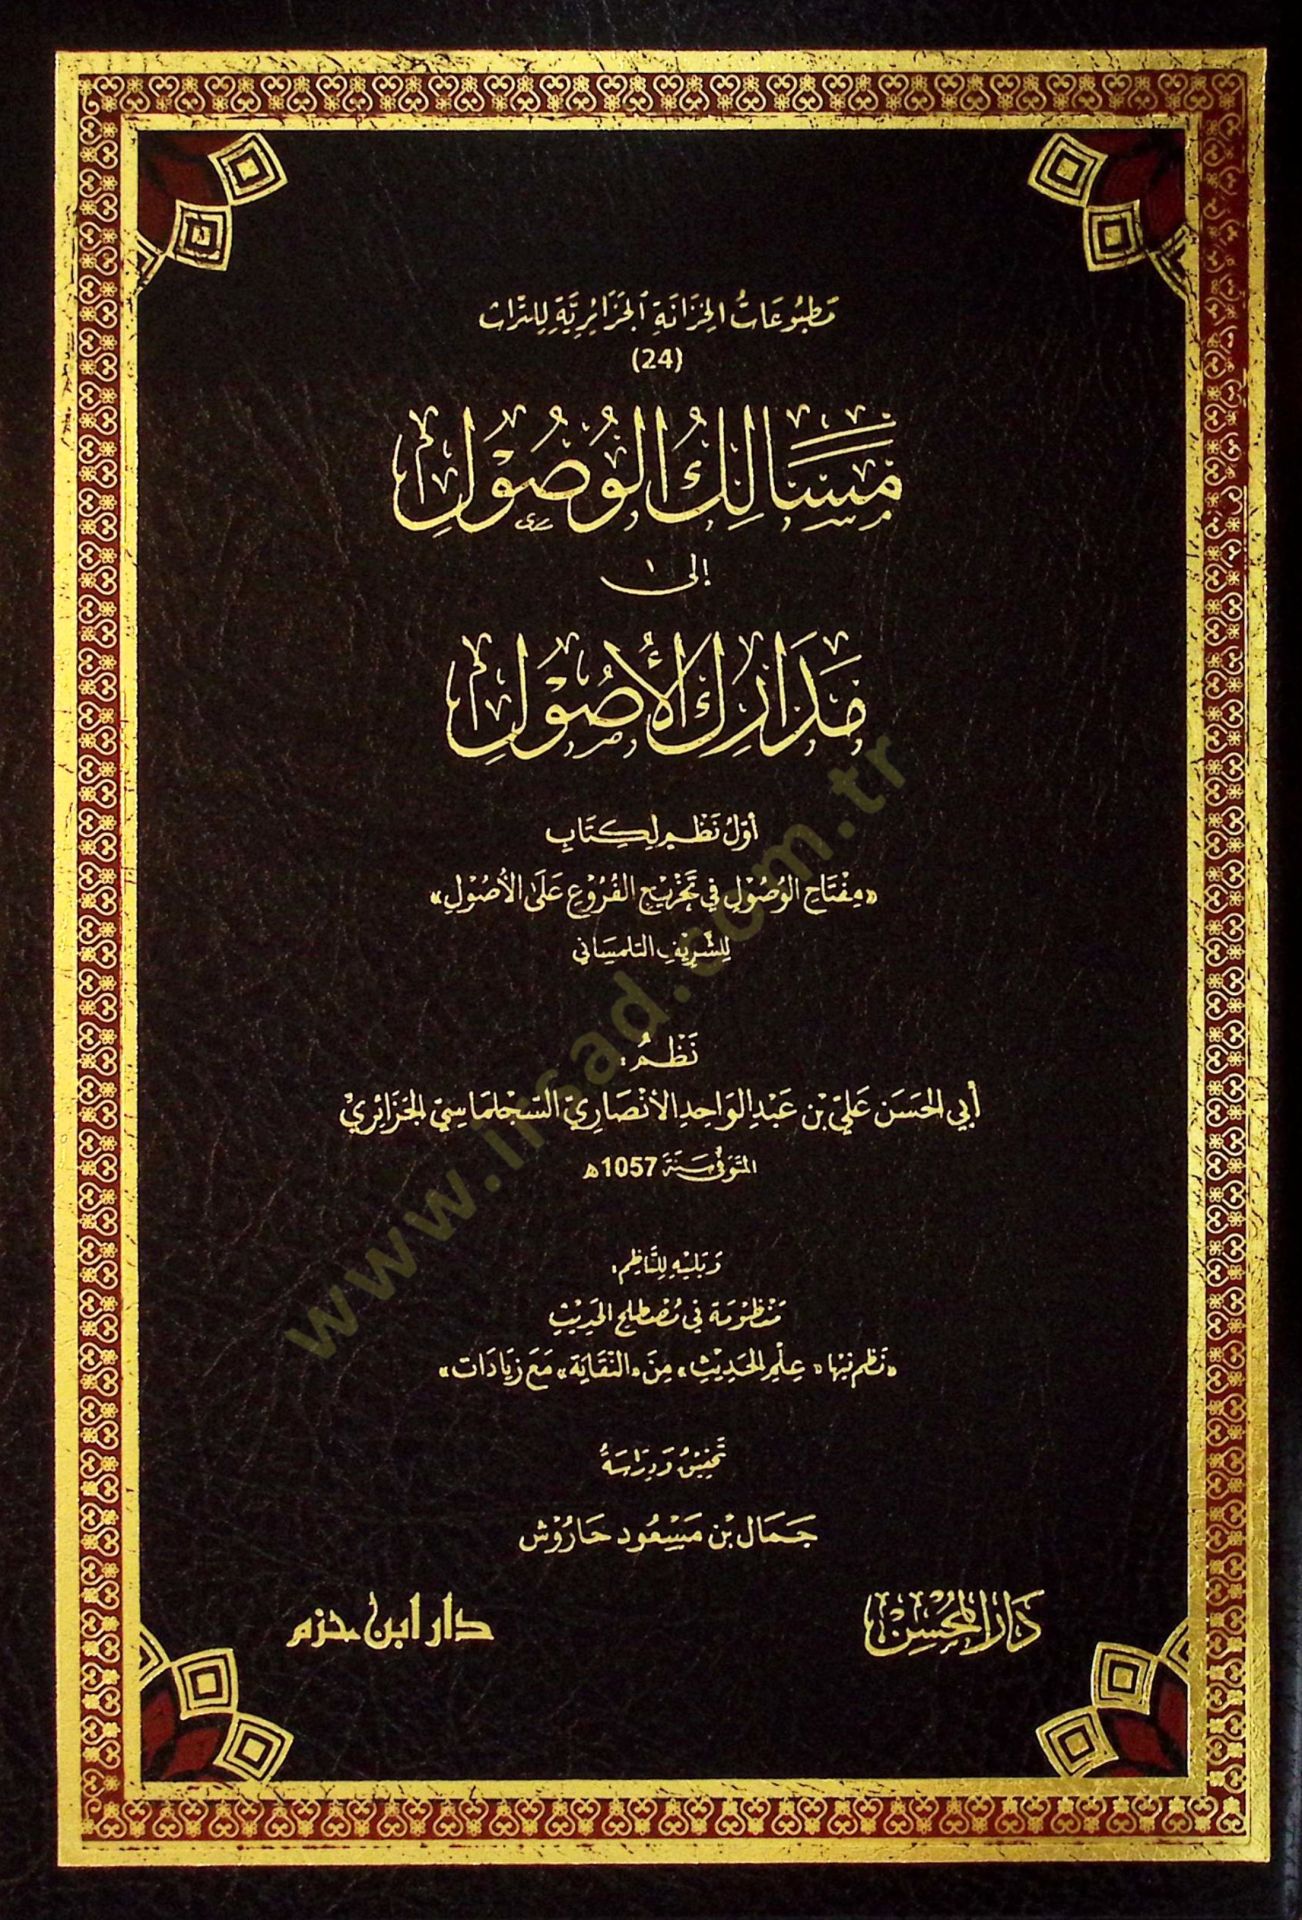 مَطْبُوعَاتُ الخِزَانَةِ الجَزَائِرِيَّةِ لِلتّراث
(24)
مَسَالِكُ الوُصُوْلِ
إلى
مَدَارِكِ الأُصُوْلِ
أوّلُ نَظْمٍ لِكِتَابِ
«مِفْتَاحِ الوُصُوْلِ فِي تَخْرِيْجِ الفُرُوْعِ عَلَى الأُصُوْلِ»
لِلشَّرِيْفِ التلمسَاني
نَظْمُ:
أبي الحَسَن عَليّ بْن عَبْدِ الوَاحِدِ الأنْصَارِيّ السّجلمَاسِيّ الجَزَائِرِيّ
المتَوَفّى سَنَة 1057 هـ
وَيَليْهِ لِلنَّاظِم:
مَنْظوْمَة فِي مُصْطَلح الحَدِيْثِ
«نَظم فيْهَا «عِلْم الحَدِيْثِ» مِنَ «النّقَايَة» مَعَ زِيَادَات»
تَحْقِيْقُ وَدِرَاسَةُ
جَمَال بْن مَسْعُود حَارُوْش
دَارُ المُحْسِنْ
دار ابن حزم
www.irsad.com.tr